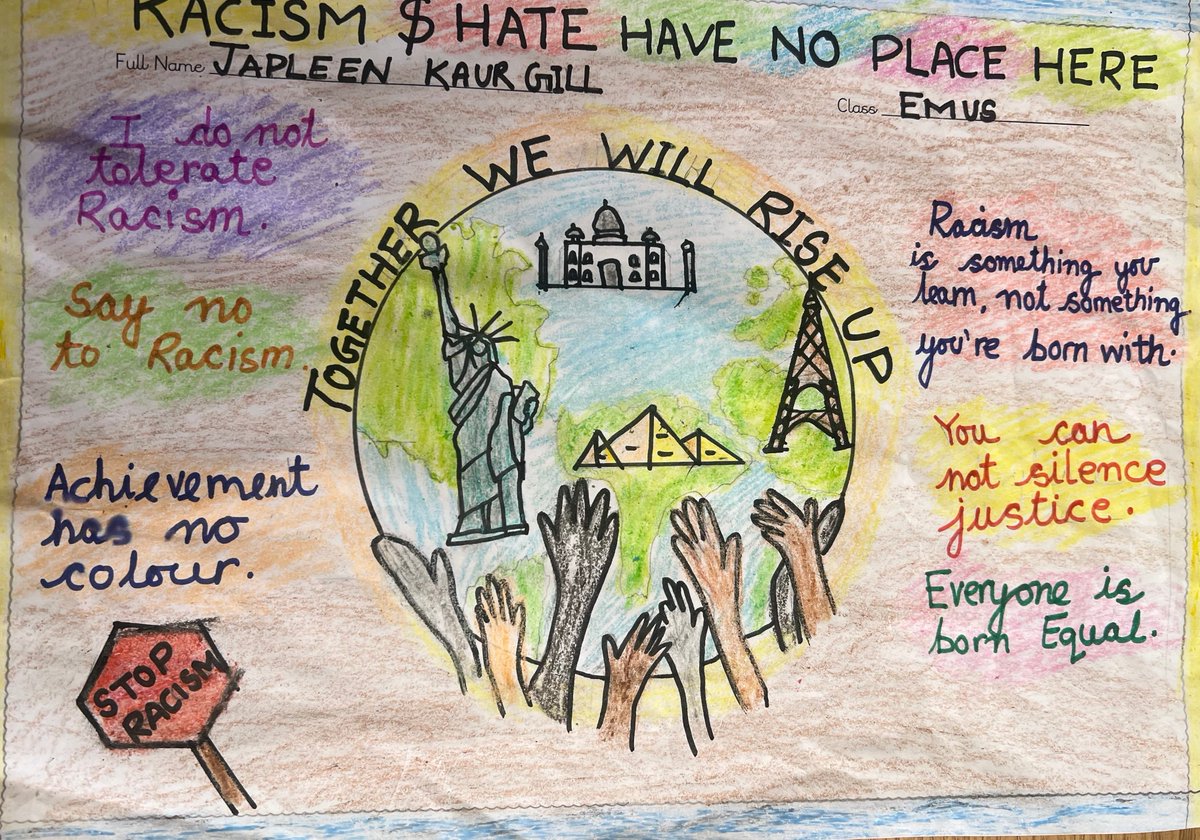 RACISM $ HATE HAVE NO PLACE HERE
Full Name JAPLEEN KAUR GILL
Class EMUS
I do not
tolerate
Racism.
Say no
to Racism.
Achievement
has no
colour.
STOP
RACISM
TOGETHER WE WILL RISE UP
Racism
is something you
learn, not something
you're born with.
You can
not silence
justice.
Everyone is
born Equal.